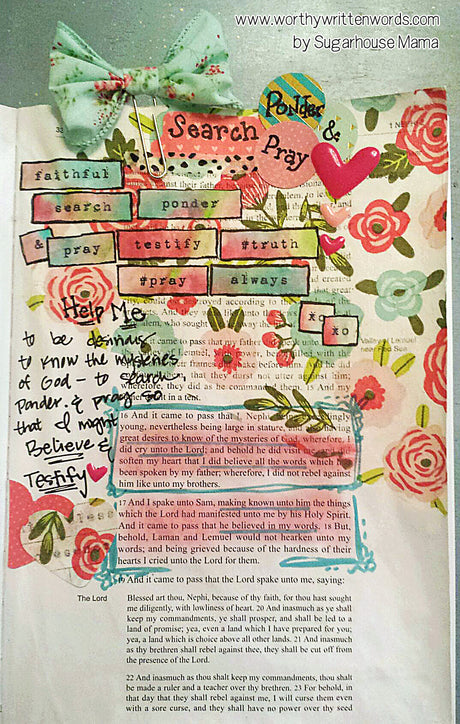 www.worthywrittenwords.com
by Sugarhouse Mama
Search
Ponder
&
Pray
faithful
search ponder
& pray testify #truth
#pray always
xo
xo
Help Me
to be desirous
to know the mysteries
of God - to search -
Ponder & pray so
that I might
Believe &
Testify
16 And it came to pass that I, Nephi, being exceedingly
young, nevertheless being large in stature, and also having
great desires to know of the mysteries of God, wherefore, I
did cry unto the Lord; and behold he did visit me, and did
soften my heart that I did believe all the words which had
been spoken by my father; wherefore, I did not rebel against
him like unto my brothers.
17 And I spake unto Sam, making known unto him the things
which the Lord had manifested unto me by his Holy Spirit.
And it came to pass that he believed in my words. 18 But,
behold, Laman and Lemuel would not hearken unto my
words; and being grieved because of the hardness of their
hearts I cried unto the Lord for them.
19 And it came to pass that the Lord spake unto me, saying:
The Lord
Blessed art thou, Nephi, because of thy faith, for thou hast sought
me diligently, with lowliness of heart. 20 And inasmuch as ye shall
keep my commandments, ye shall prosper, and shall be led to a
land of promise; yea, even a land which I have prepared for you;
yea, a land which is choice above all other lands. 21 And inasmuch
as thy brethren shall rebel against thee, they shall be cut off from
the presence of the Lord.
22 And inasmuch as thou shalt keep my commandments, thou shalt
be made a ruler and a teacher over thy brethren. 23 For behold, in
that day that they shall rebel against me, I will curse them even
with a sore curse, and they shall have no power over thy seed